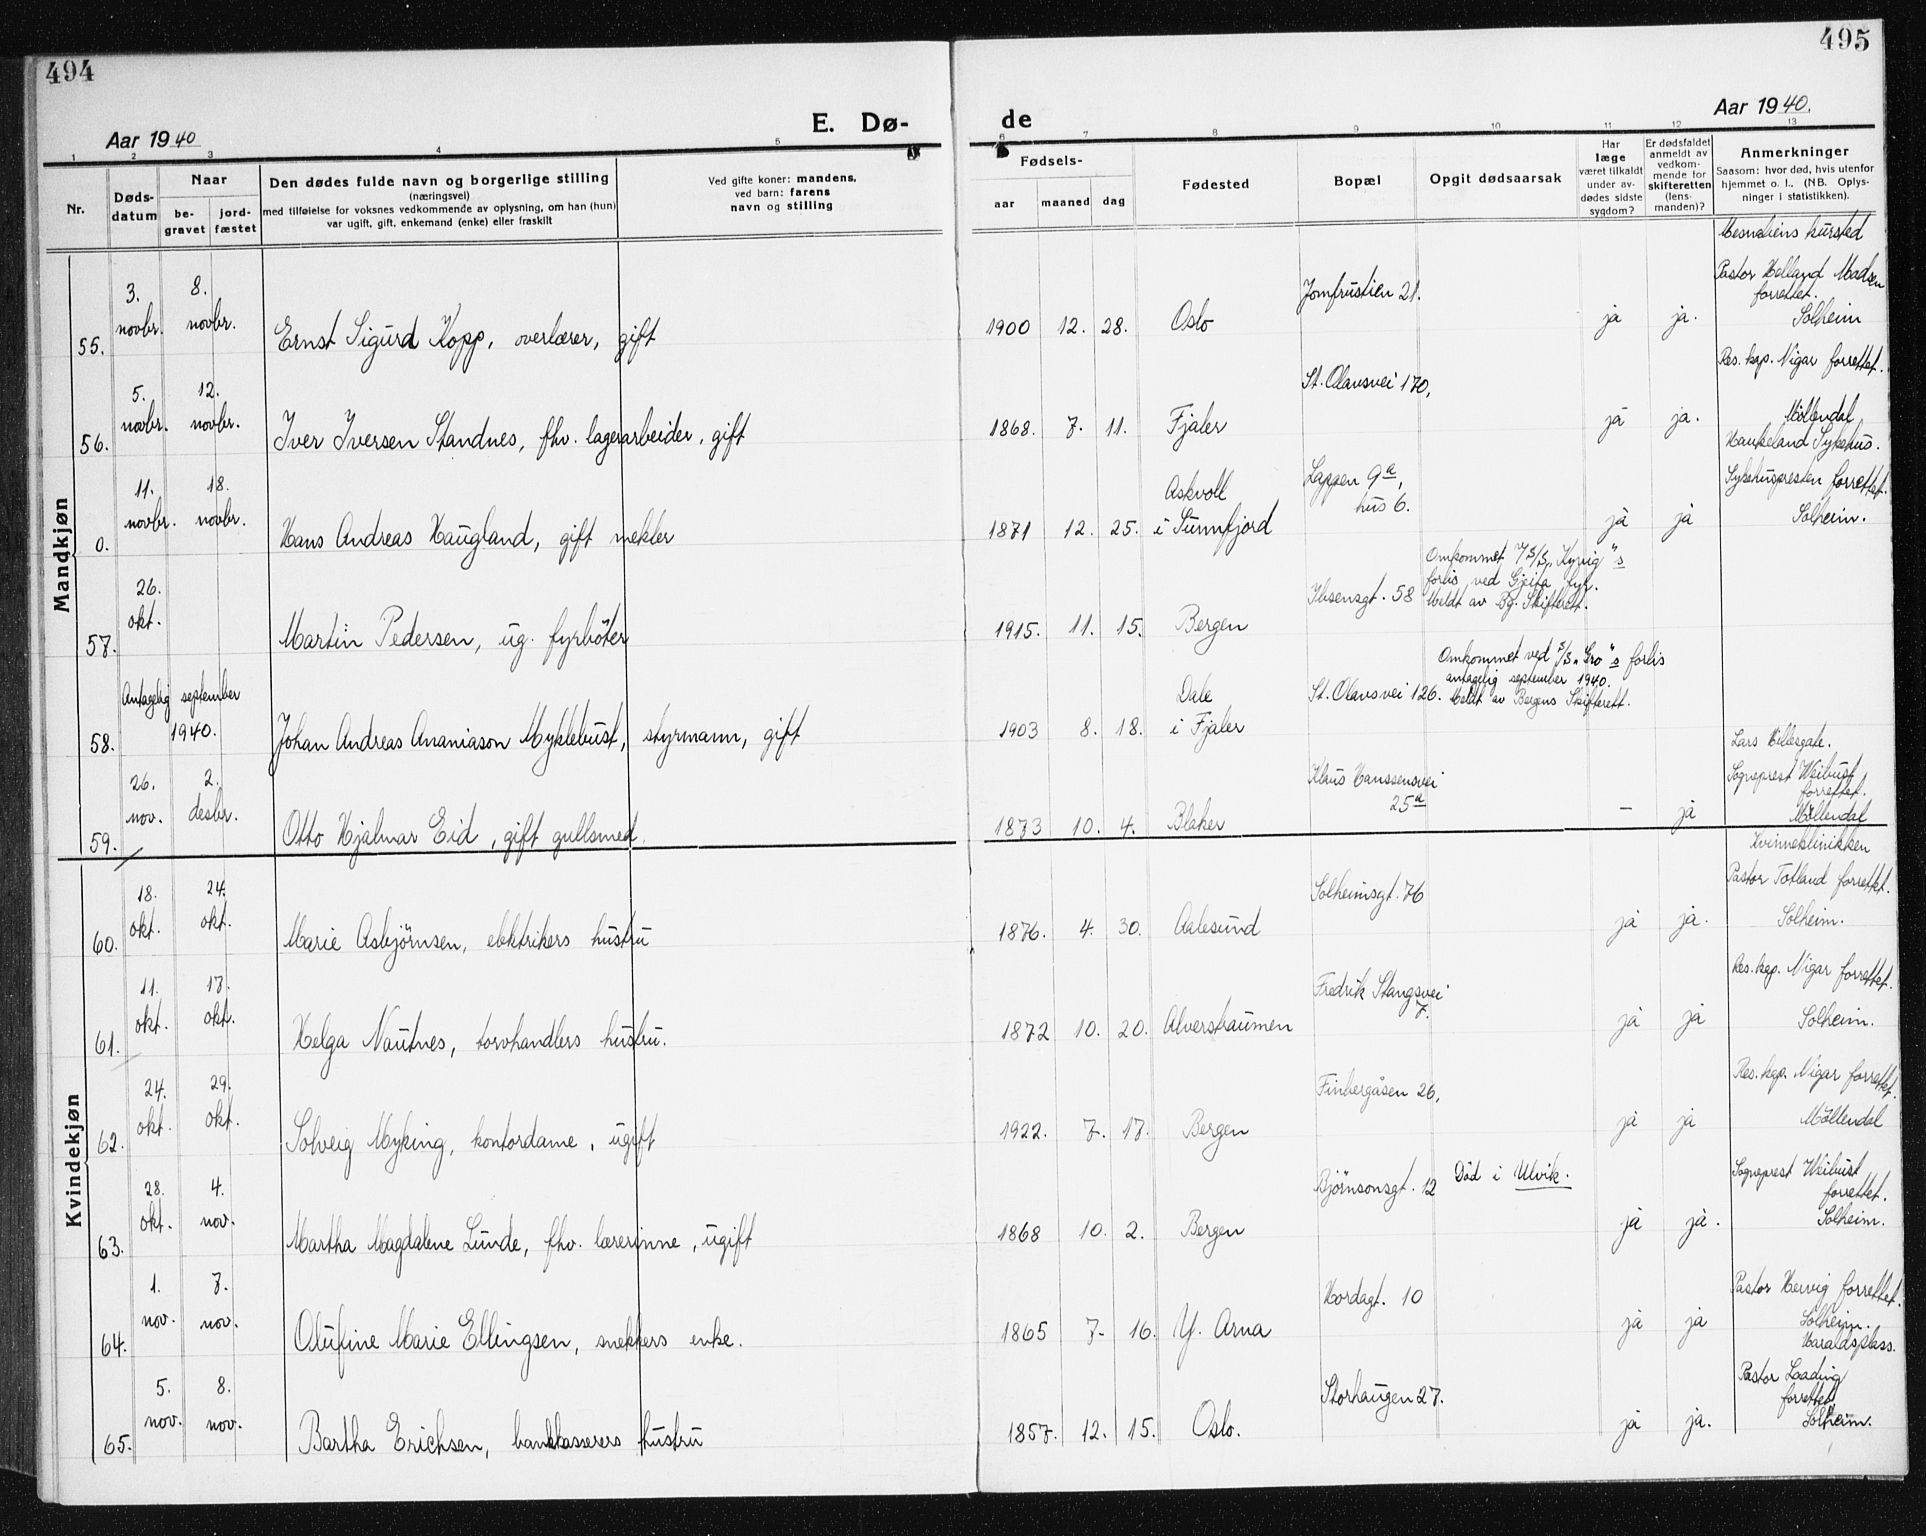 494
495
E. Dø-
de
Aar 1940
Aar 1940.
1 2 3 4 5 6 7 8 9 10 11 12 13
Nr.
Døds-
datum
Naar
be-
gravet
jord-
fæstet
Den dødes fulde navn og borgerlige stilling
(næringsvei)
med tilføielse for voksnes vedkommende av oplysning, om han (hun)
var ugift, gift, enkemand (enke) eller fraskilt
Ved gifte koner: mandens,
ved barn: farens
navn og stilling
Fødsels-
aar maaned dag
Fødested
Bopæl
Opgit dødsaarsak
Har
læge
været tilkaldt
under av-
dødes sidste
sygdom?
Er dødsfaldet
anmeldt av
vedkom-
mende for
skifteretten
(lens-
manden)?
Anmerkninger
Saasom: hvor død, hvis utenfor
hjemmet o. l.. (NB. Oplys-
ninger i statistikken).
Mandkjøn
Mesnaliens kursted
3. 8. Jomfrustien 21. Pastor Helland Madsen
forrettet.
55. novbr. novbr. Ernst Sigurd Kopp, overlærer, gift 1900 12. 28. Oslo ja ja. Solheim
5. 12. St. Olavsvei 170, Res. kap. Nigar forrettet.
56. novbr. novbr. Iver Iversen Standnes, fhv. lagerarbeider, gift 1868. 7. 11. Fjaler ja ja. Möllendal
Haukeland Sykehus.
11. 18. Askvoll Lappen 9a, Sykehuspresten forrettet.
hus 6.
0. novbr. novbr. Hans Andreas Haugland, gift mekler 1871 12. 25. i Sunnfjord ja ja Solheim.
26. Omkommet v/ S/S „Kyvig"s
forlis ved Gjeita fyr.
Ibsensgt. 58 Meldt av Bg. Skifterett.
57. okt. Martin Pedersen, ug. fyrböter 1915. 11. 15. Bergen
Antagelig september Omkommet ved S/S „Gro"s forlis
antagelig september 1940.
Dale St. Olavsvei 126. Meldt av Bergens Skifterett.
58. 1940. Johan Andreas Ananiason Myklebust, styrmann, gift 1903 8. 18. i Fjaler
Lars Hillesgate.
26. 2. Klaus Hanssensvei Sogneprest Weibust
25a forrettet.
59. nov. desbr. Otto Hjalmar Eid, gift gullsmed. 1873 10. 4. Blaker – ja Möllendal
Kvindekjøn
Kvinneklinikken
18. 24. Solheimsgt. 76 Pastor Totland forrettet.
60. okt. okt. Marie Asbjörnsen, elektrikers hustru 1876. 4. 30. Aalesund ja ja. Solheim.
11. 17. Fredrik Stangsvei Res. kap. Nigar forrettet.
7.
61. okt. okt. Helga Nautnes, torvhandlers hustru. 1872 10. 20. Alverstraumen ja ja Solheim.
24. 29. Finbergåsen 26, Res. kap. Nigar forrettet.
62. okt. okt. Solveig Myking, kontordame, ugift 1922. 7. 17. Bergen ja ja Möllendal
28. 4. Björnsonsgt. 12 Död i Ulvik. Sogneprest Weibust
forrettet.
63. okt. nov. Martha Magdalene Lunde, fhv. lærerinne, ugift 1868 10. 2. Bergen ja ja. Solheim.
1. 7. Hordagt. 10 Pastor Hervig forrettet.
64. nov. nov. Olufine Marie Ellingsen, snekkers enke. 1865 7. 16. Y. Arna ja ja Solheim.
Haraldsplass.
5. 8. Storhaugen 27. Pastor Loading
forrettet
65. nov. nov. Bartha Erichsen, bankkasserers hustru 1857. 12. 15. Oslo. ja ja. Solheim.